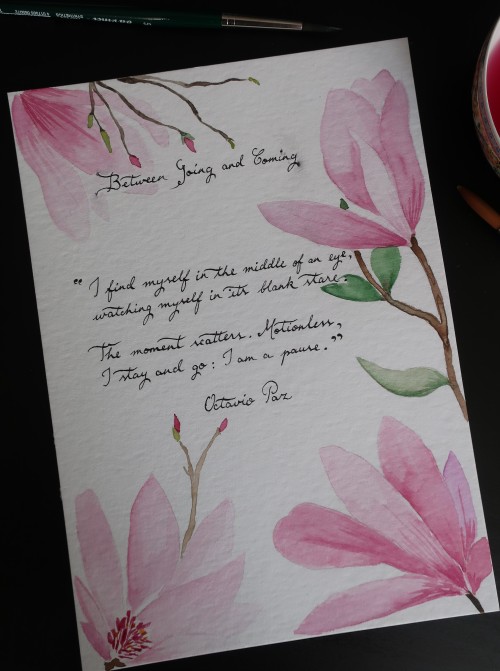 Between Going and Coming
"I find myself in the middle of an eye,
watching myself in its blank stare.
The moment scatters. Motionless,
I stay and go: I am a pause."
Octavio Paz